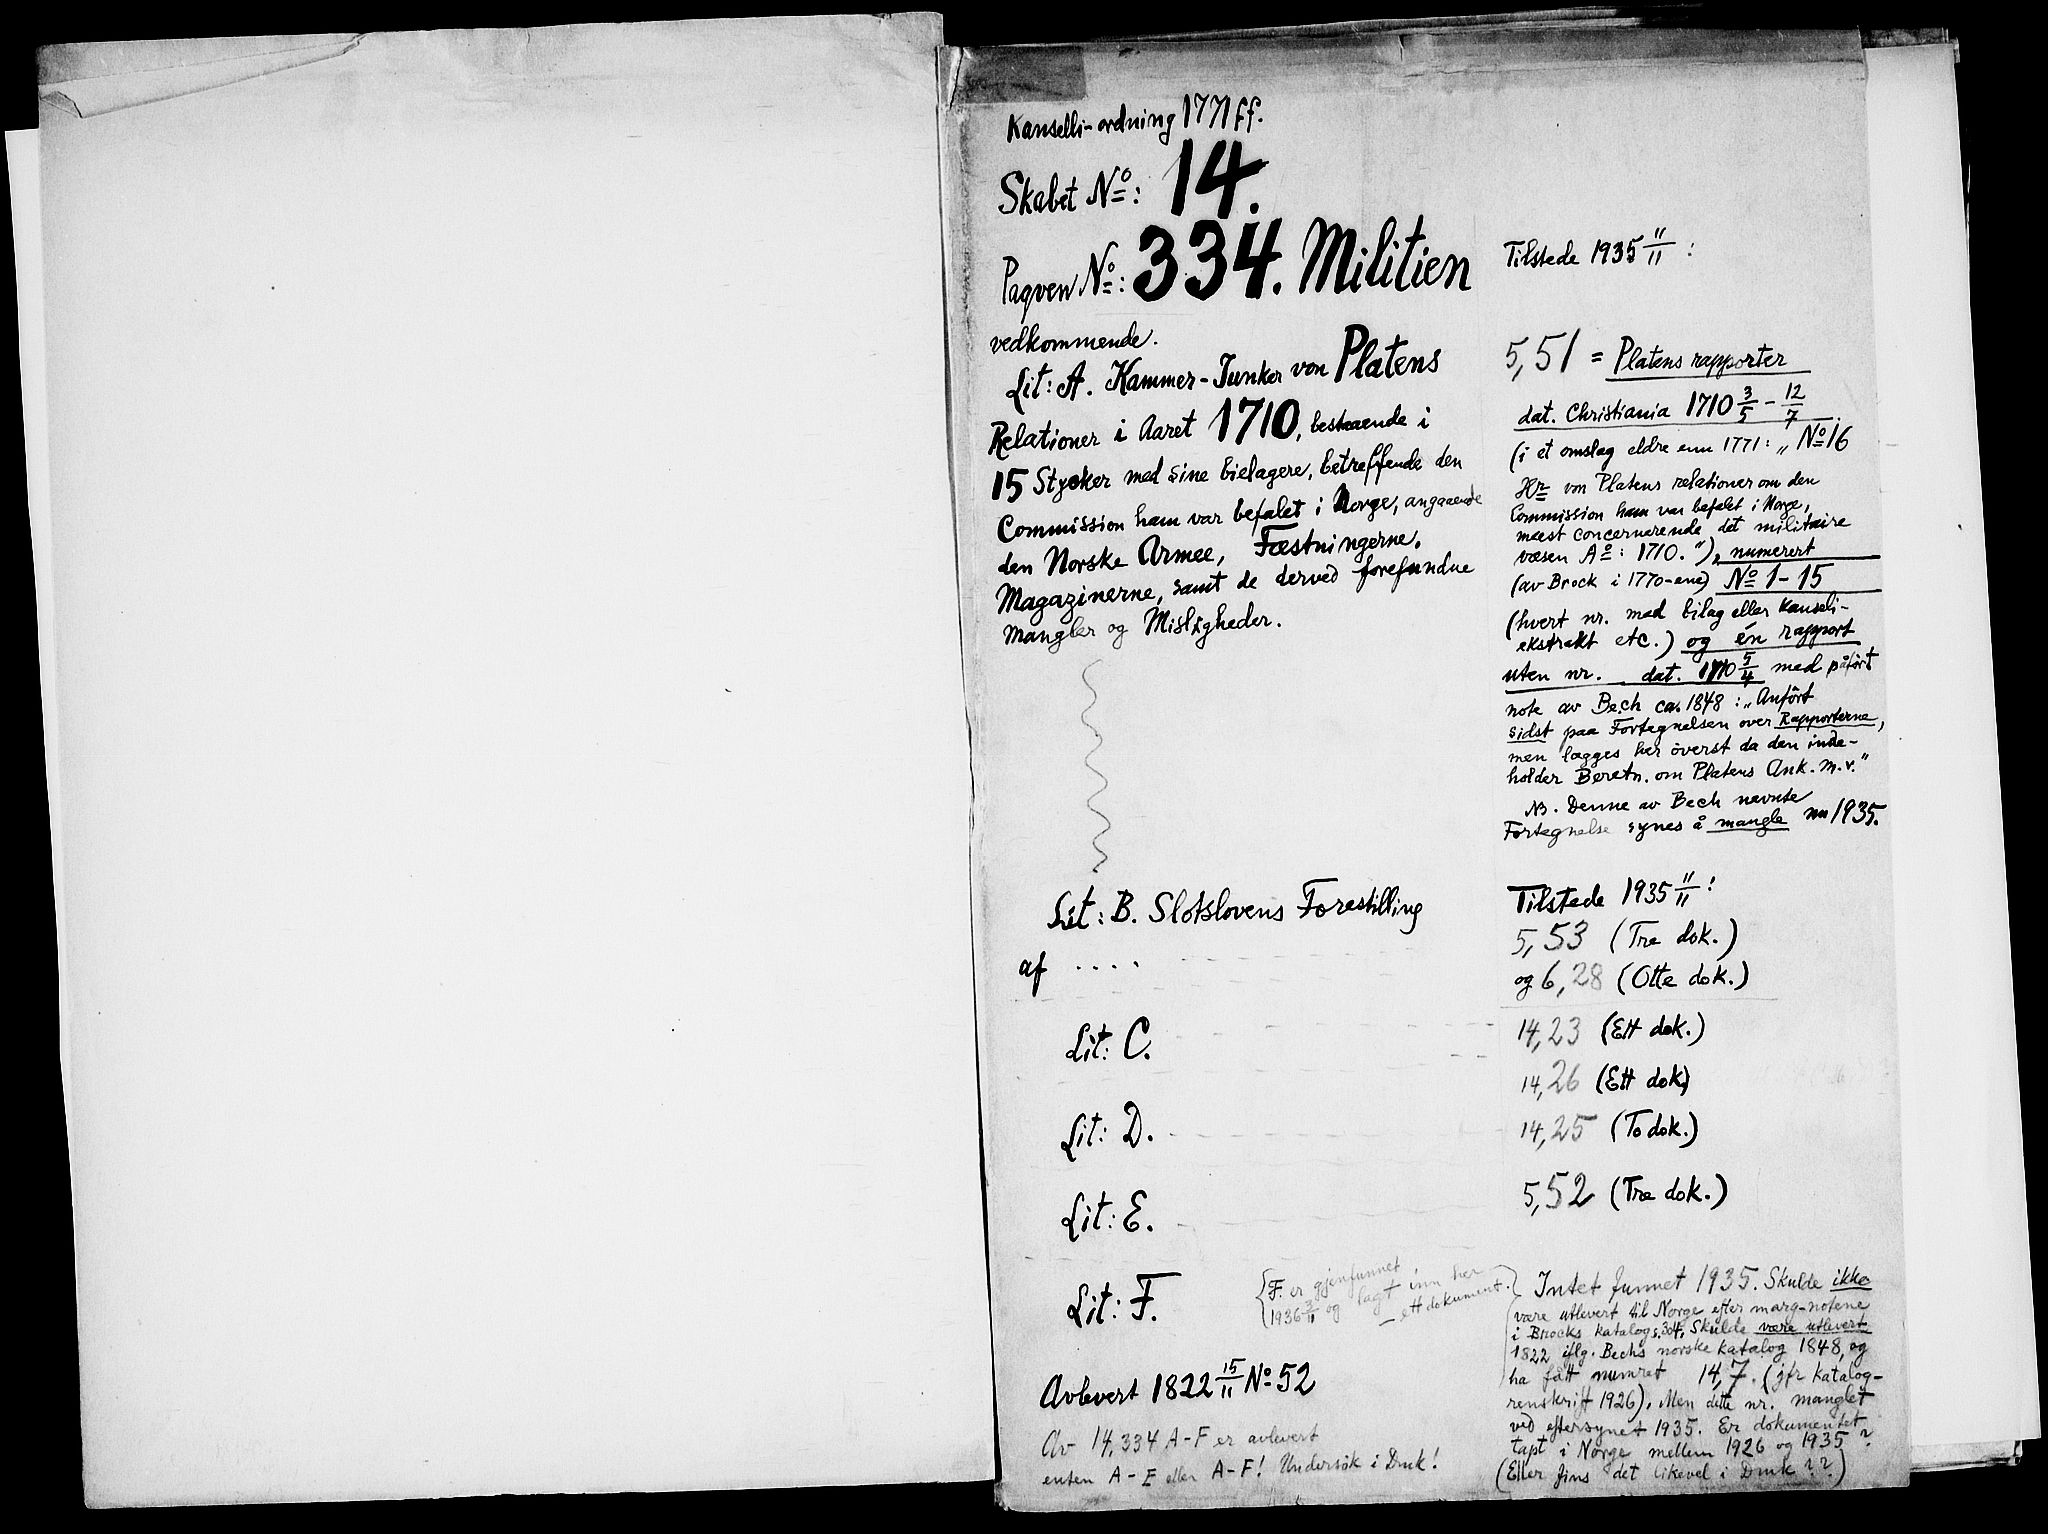 Kanselli-ordning 1771 ff.
Skabet No: 14.
Paqven No: 334. Militien
vedkommende.
Lit: A. Kammer-Junker von Platens
Relationer i Aaret 1710, bestaaende i
15 Stycker med sine bielagere, betreffende den
Commission ham var befalet i Norge, angaaende
den Norske Armee, Fæstningerne,
Magazinerne, samt de derved forefundne
Mangler og Misligheder.
Lit: B. Slotslovens Forestilling
af ....
Lit: C.
Lit: D.
Lit: E.
Lit: F.
{F. er gjenfunnet
1936 3/11 og lagt inn her
– ett dokument.
Avlevert 1822 15/11 No 52
Av 14,334 A-F er avlevert
enten A-E eller A-F! Undersök i Dmk!
Tilstede 1935 11/11:
5,51 = Platens rapporter
dat. Christiania 1710 3/5 – 12/7
(i et omslag eldre enn 1771: „No 16
Hr von Platens relationer om den
Commission ham var befalet i Norge,
meest concernerende det militaire
væsen Ao: 1710.“), numerert
(av Brock i 1770-ene) No 1-15
(hvert nr. med bilag eller kanseli-
ekstrakt etc.) og én rapport
uten nr. dat. 1710 5/4 med påført
note av Bech ca. 1848: „Anført
sidst paa Fortegnelsen over Rapporterne,
men lægges her överst da den inde-
holder Beretn. om Platens Ank. m.v.“
NB. Denne av Bech nevnte
Fortegnelse synes å mangle nu 1935.
Tilstede 1935 11/11:
5,53 (Tre dok.)
og 6,28 (Otte dok.)
14,23 (Ett dok.)
14,26 (Ett dok.)
14,25 (To dok.)
5,52 (Tre dok.)
Intet funnet 1935. Skulde ikke
være utlevert til Norge efter marg-notene
i Brocks katalog s. 304. Skulde være utlevert
1822 iflg. Bechs norske katalog 1848, og
ha fått numret 14,7. (jfr katalog-
renskrift 1926). Men dette nr. manglet
ved eftersynet 1935. Er dokumentet
tapt i Norge mellem 1926 og 1935?
(Eller fins det likevel i Dmk??)